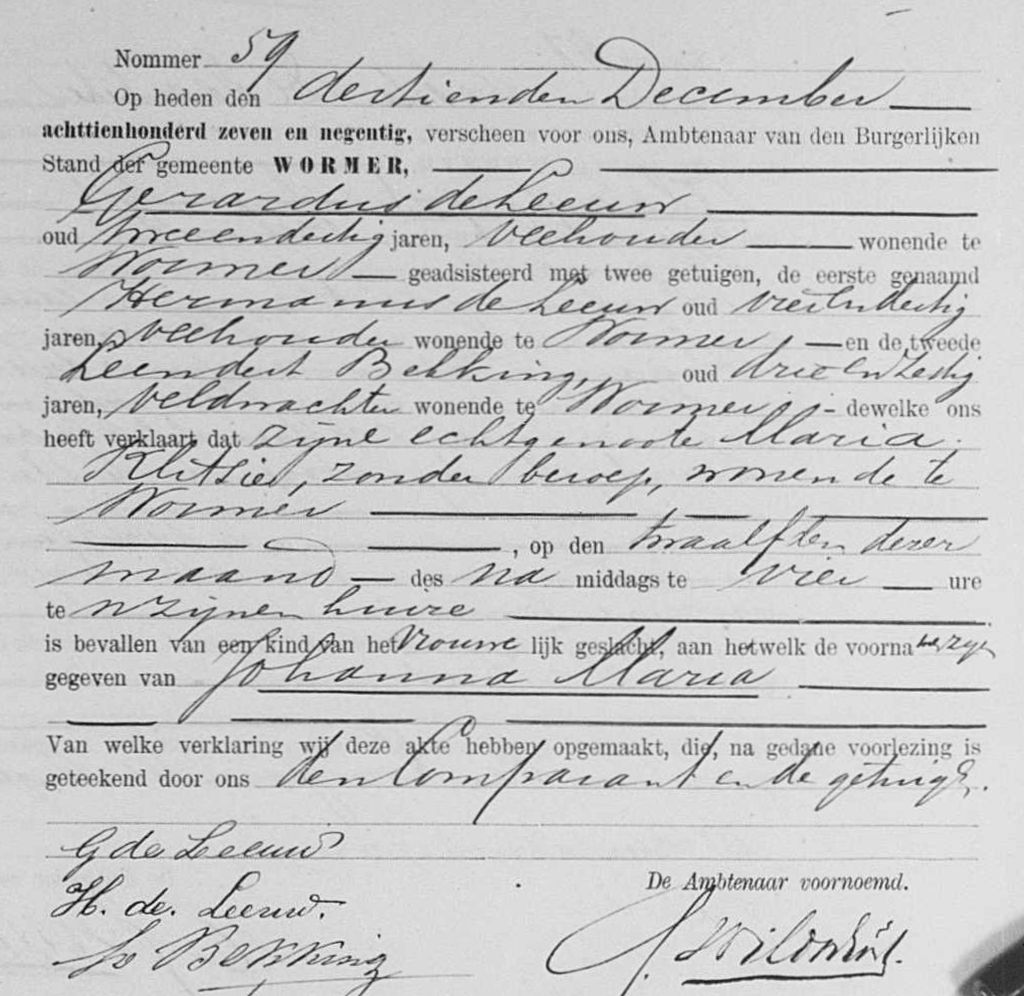 Nommer 59
Op heden den dertienden December
achttienhonderd zeven en negentig, verscheen voor ons, Ambtenaar van den Burgerlijken
Stand der gemeente WORMER,
Gerardus de Leeuw
oud tweeendertig jaren, veehouder wonende te
Wormer geadsisteerd met twee getuigen, de eerste genaamd
Hermanus de Leeuw oud vierendertig
jaren, veehouder wonende te Wormer, en de tweede
Leendert Bekking, oud drieenzestig
jaren, veldwachter wonende te Wormer, dewelke ons
heeft verklaart dat zijne echtgenoote Maria
Klitsie, zonder beroep, wonende te
Wormer
, op den twaalften dezer
maand des na middags te vier ure
te n zijnen huize
is bevallen van een kind van het vrouwe lijk geslacht, aan hetwelk de voorna men zijn
gegeven van Johanna Maria
Van welke verklaring wij deze akte hebben opgemaakt, die, na gedane voorlezing is
geteekend door ons den Comparant en de getuigen.
G de Leeuw
H. de. Leeuw.
De Ambtenaar voornoemd.
L Bekking